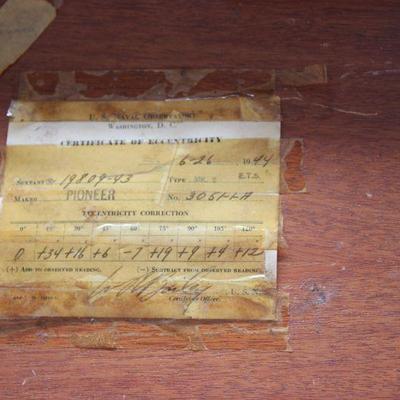 U. S. NAVAL OBSERVATORY
WASHINGTON, D. C.
CERTIFICATE OF ECCENTRICITY
6-26 1944
SEXTANT 19809-43 TYPE E.T.S.
MAKER PIONEER No. 3051-1-A
ECCENTRICITY CORRECTION
0° 15° 30° 45° 60° 75° 90° 105° 120°
0 +34 +16 +6 -7 +19 +9 +4 +12
(+) ADD TO OBSERVED READING. (-) SUBTRACT FROM OBSERVED READING.
U. S. N.
Certifying Officer.